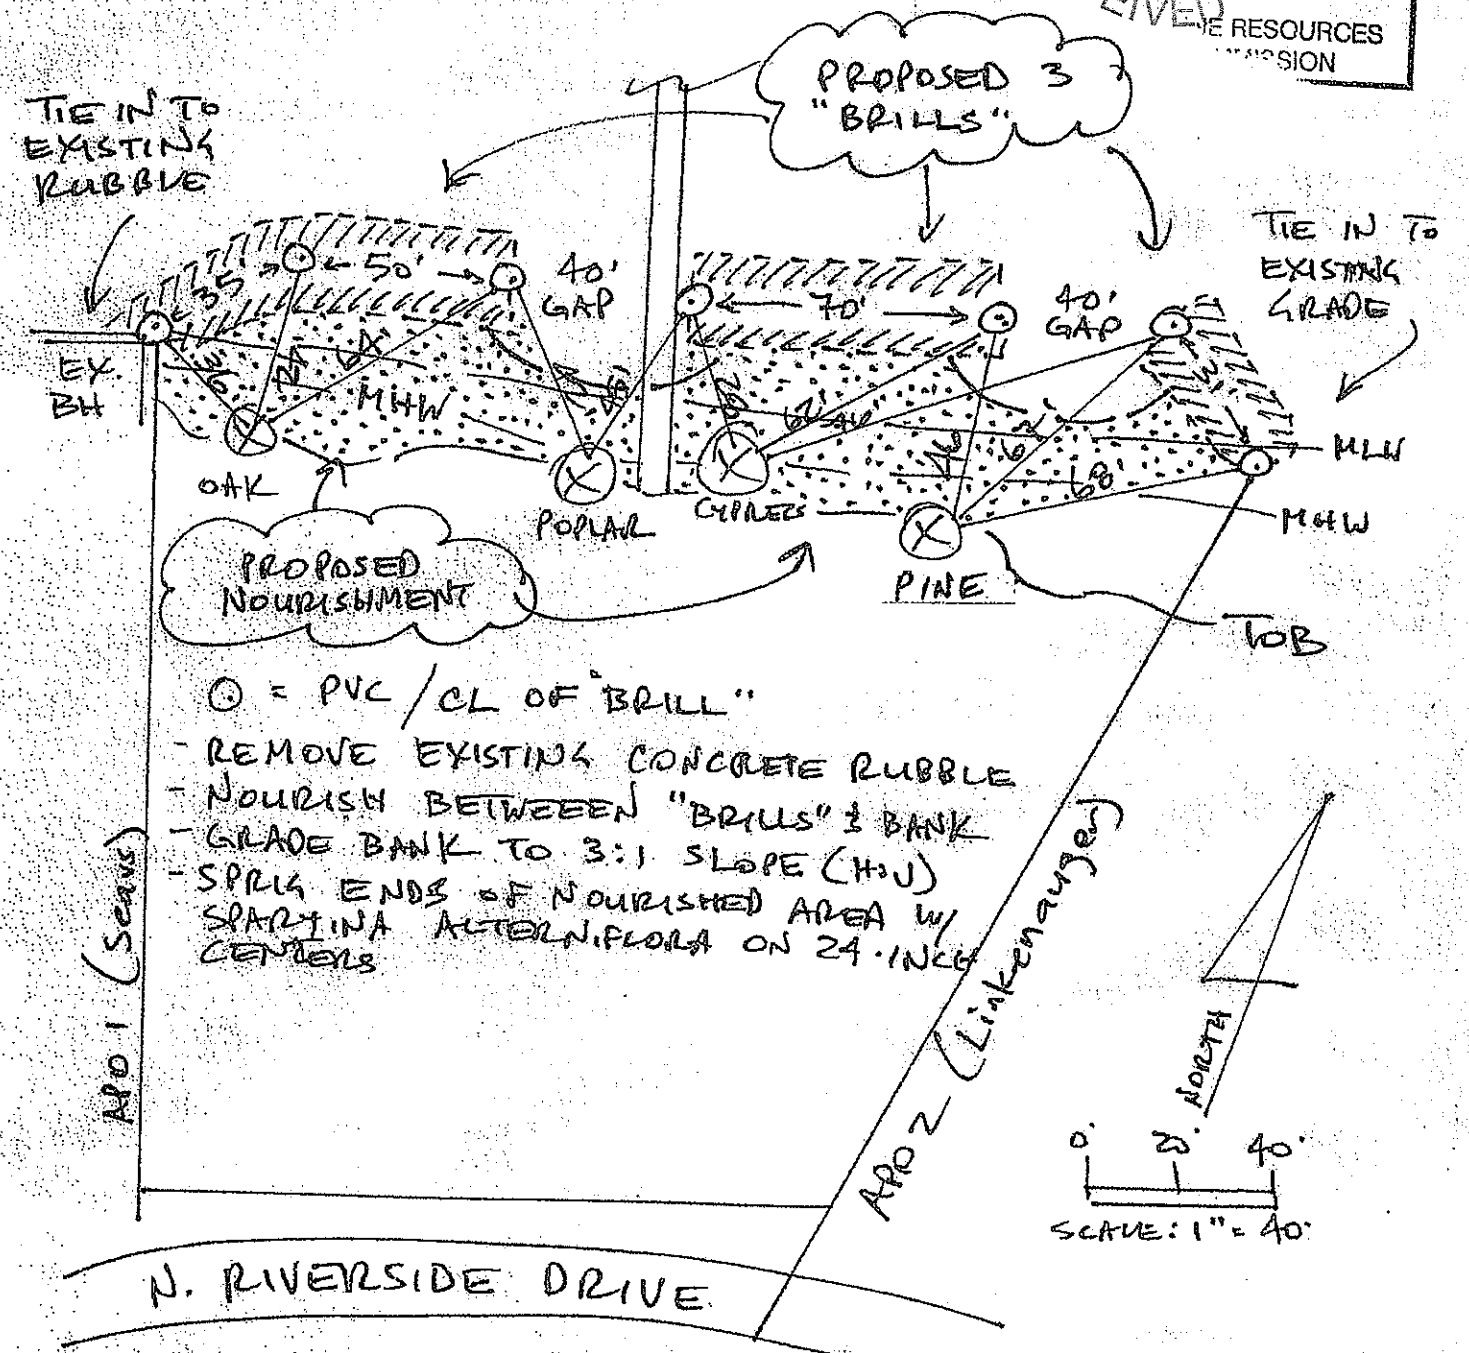 E RESOURCES
SION
PROPOSED 3
"BRILLS"
TIE IN TO
EXISTING
RUBBLE
TIE IN TO
EXISTING
GRADE
35'
50'
40'
GAP
70'
40'
GAP
EX.
BH
36'
64'
MHW
46'
62'
46'
62'
68'
MLW
MHW
OAK
POPLAR
CYPRESS
PINE
TOB
PROPOSED
NOURISHMENT
= PVC / CL OF "BRILL"
- REMOVE EXISTING CONCRETE RUBBLE
- NOURISH BETWEEEN "BRILLS" & BANK
- GRADE BANK TO 3:1 SLOPE (H:V)
- SPRIG ENDS OF NOURISHED AREA W/
SPARTINA ALTERNIFLORA ON 24-INCH
CENTERS
APO 1 (Sears)
APO 2 (Linkenauger)
NORTH
0' 20' 40'
SCALE: 1" = 40'
N. RIVERSIDE DRIVE